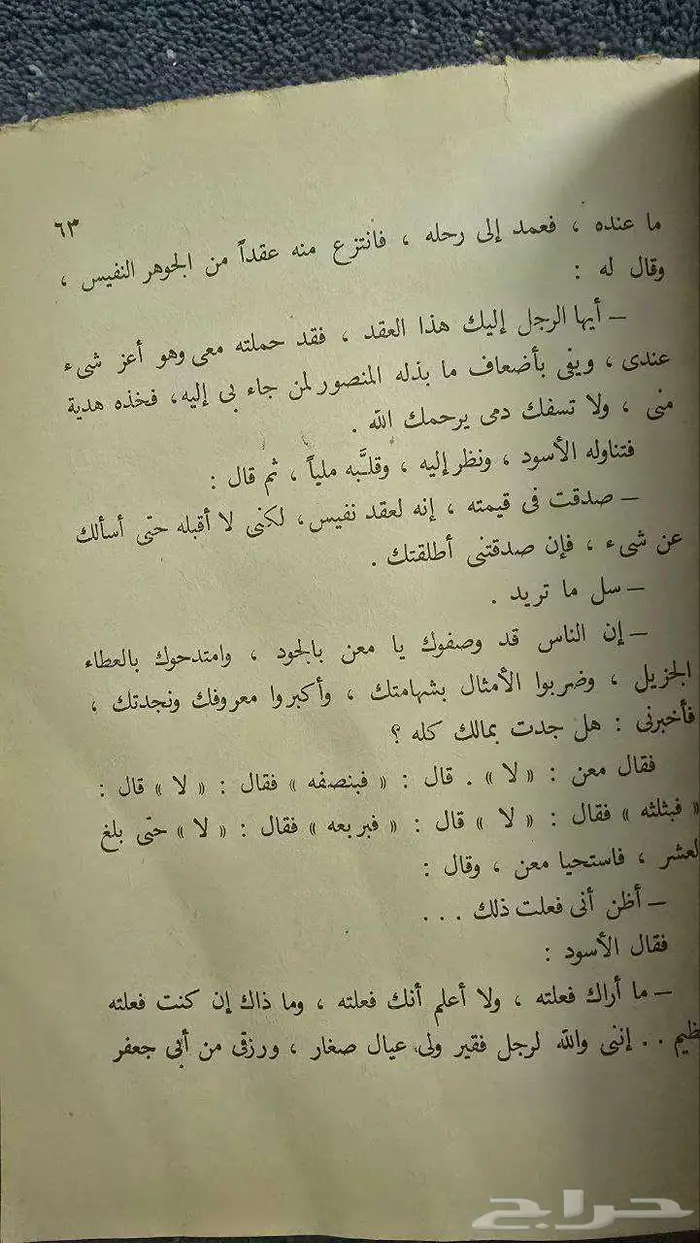 ٦٣
ما عنده ، فعمد إلى رحله ، فانتزع منه عقداً من الجوهر النفيس ،
وقال له :
— أيها الرجل إليك هذا العقد ، فقد حملته معى وهو أعز شىء
عندى ، ويفى بأضعاف ما بذله المنصور لمن جاء بى إليه ، فخذه هدية
منى ، ولا تسفك دمى يرحمك الله .
فتناوله الأسود ، ونظر إليه ، وقلَّبه ملياً ، ثم قال :
— صدقت فى قيمته ، إنه لعقد نفيس ، لكنى لا أقبله حتى أسألك
عن شىء ، فإن صدقتنى أطلقتك .
— سل ما تريد .
— إن الناس قد وصفوك يا معن بالجود ، وامتدحوك بالعطاء
الجزيل ، وضربوا الأمثال بشهامتك ، وأكبروا معروفك ونجدتك ،
فأخبرنى : هل جدت بمالك كله ؟
فقال معن : « لا » . قال : « فبنصفه » فقال : « لا » قال :
« فبثلثه » فقال : « لا » قال : « فبربعه » فقال : « لا » حتى بلغ
لعشر ، فاستحيا معن ، وقال :
— أظن أنى فعلت ذلك . . .
فقال الأسود :
— ما أراك فعلته ، ولا أعلم أنك فعلته ، وما ذاك إن كنت فعلته
ظيم . . إننى والله لرجل فقير ولى عيال صغار ، ورزقى من أبى جعفر
حراج